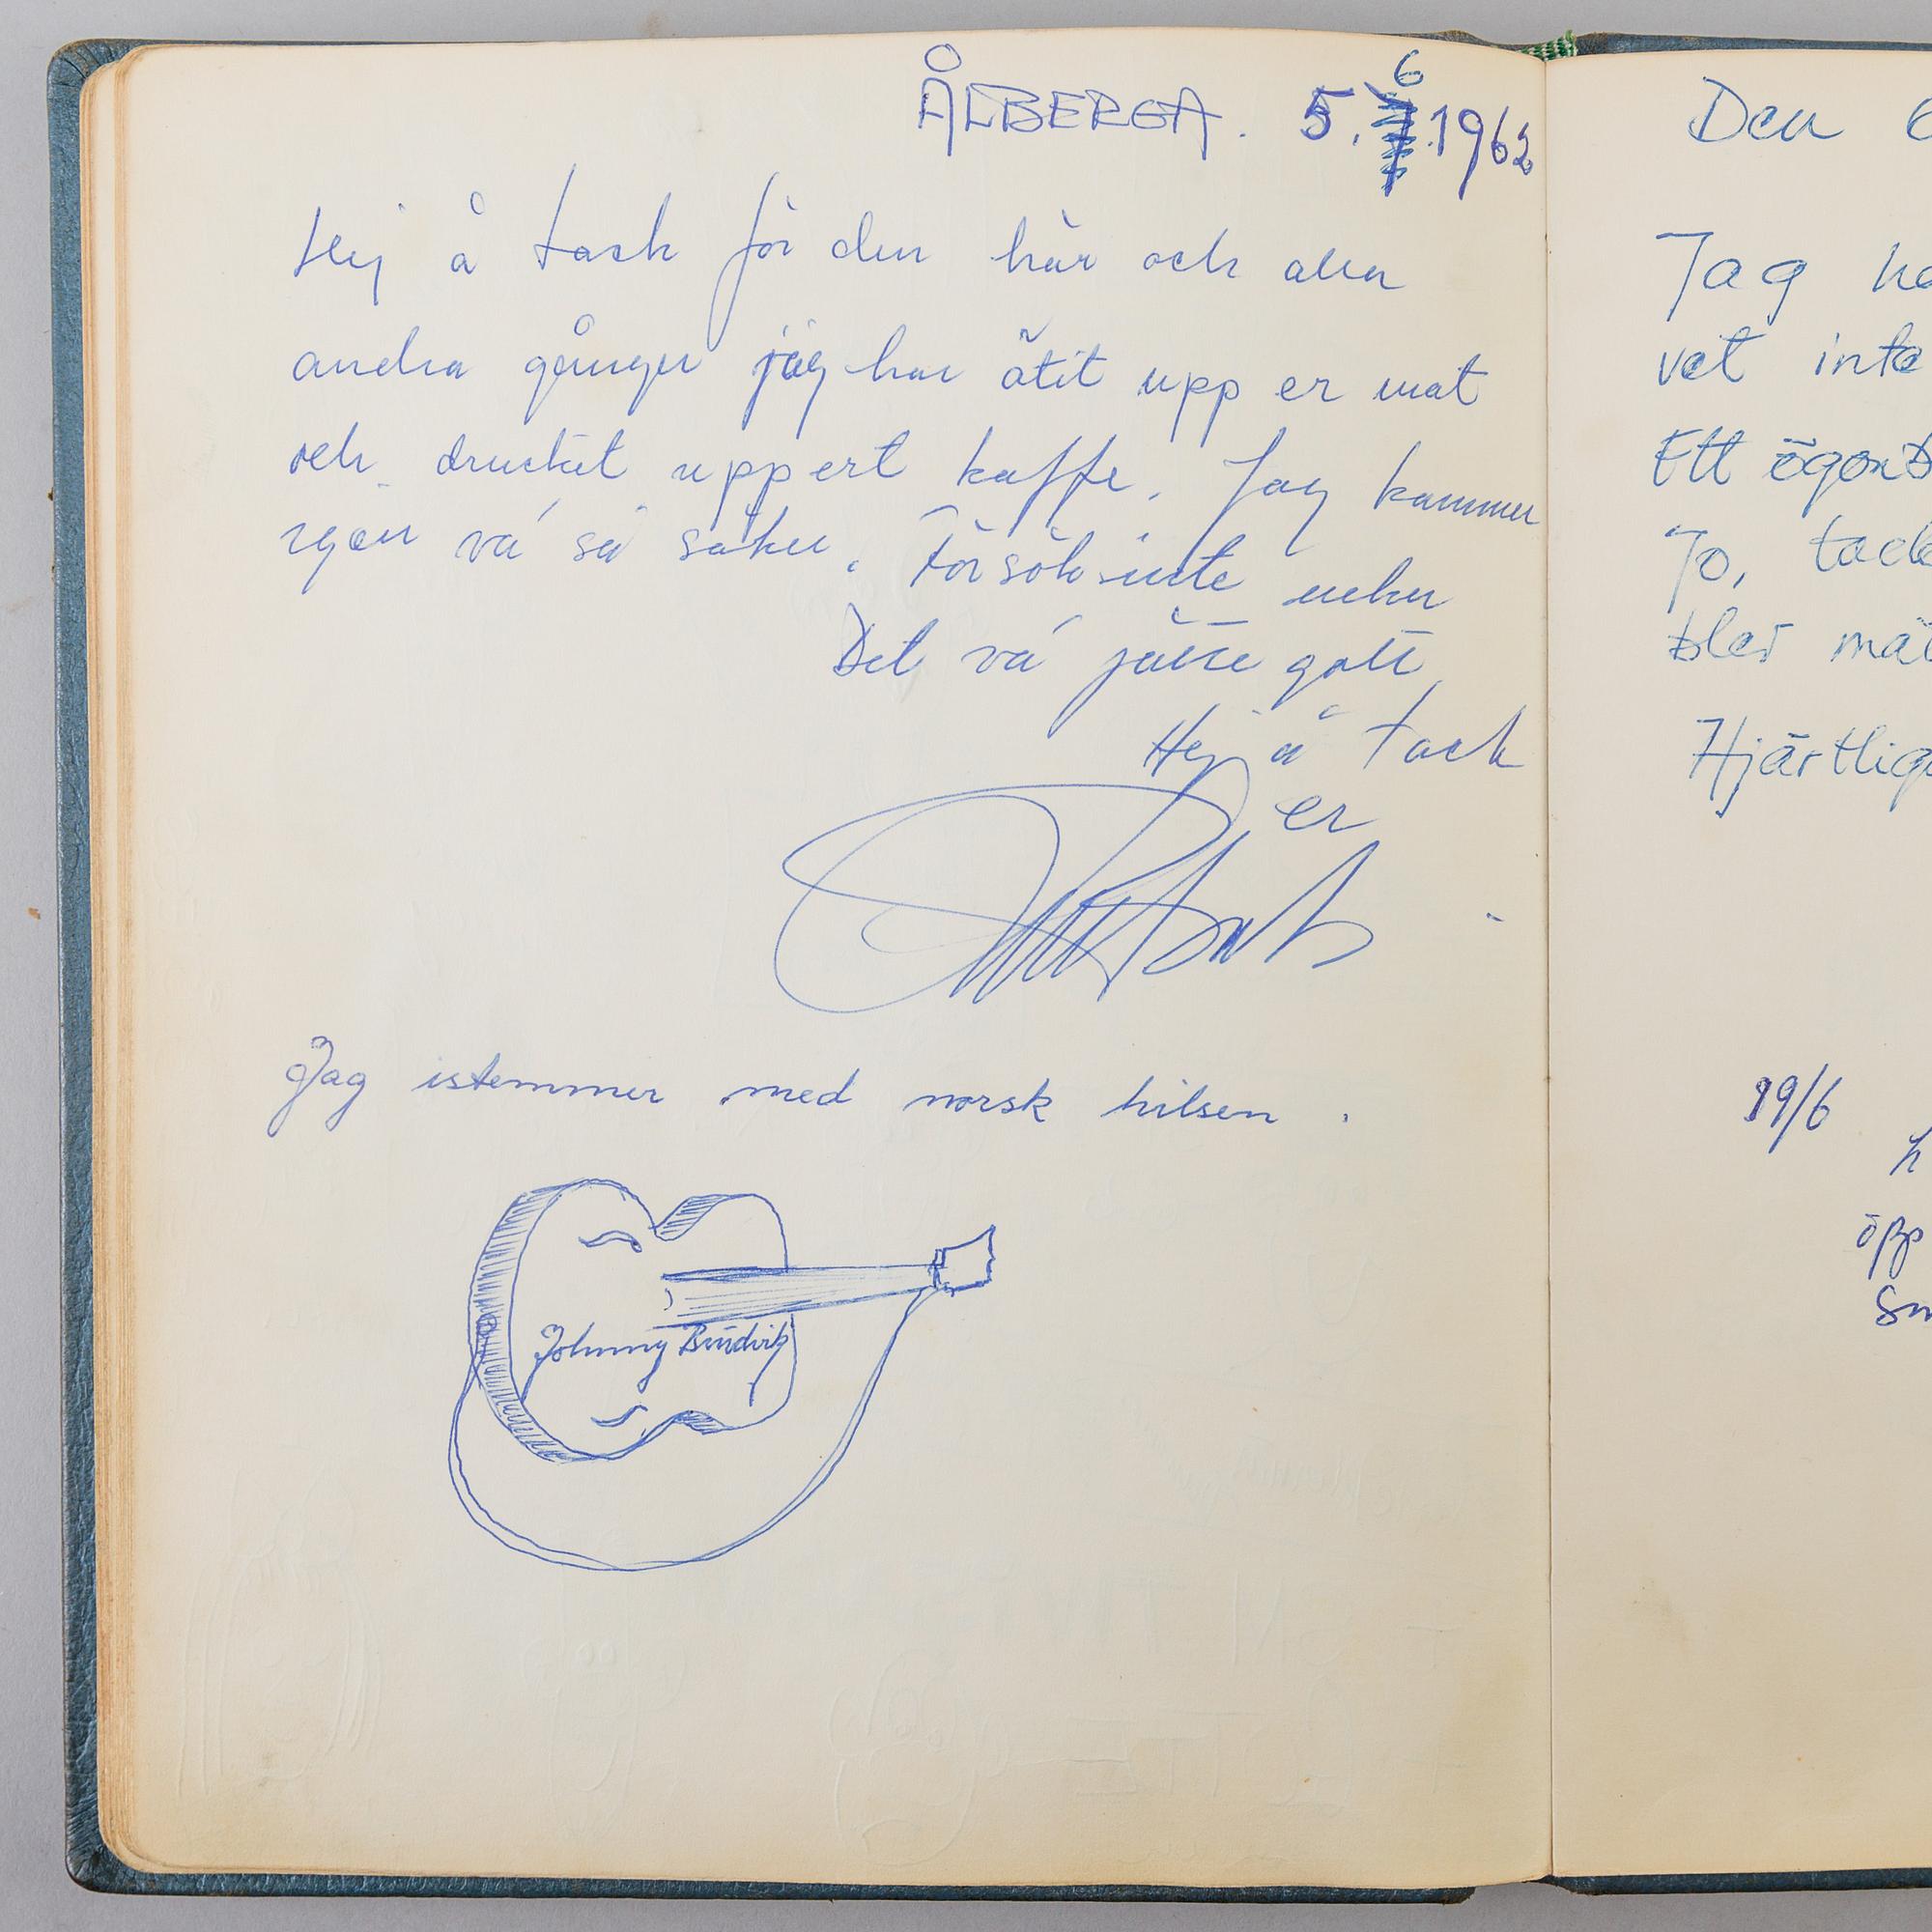 ÅLBERGA. 5.6.1962
Hej å tack för den här och alla
andra gånger jag har ätit upp er mat
och druckit upp ert kaffe. Jag kommer
igen va' så säker. Försök inte neka
Det va' jätte gott
Hej å tack
er
Jag istemmer med norsk hilsen.
Johnny
Den 6
Jag ha
vet inte
Ett ögonb
Jo, tack
blev mä
Hjärtlig
19/6
h
öpp
Sm